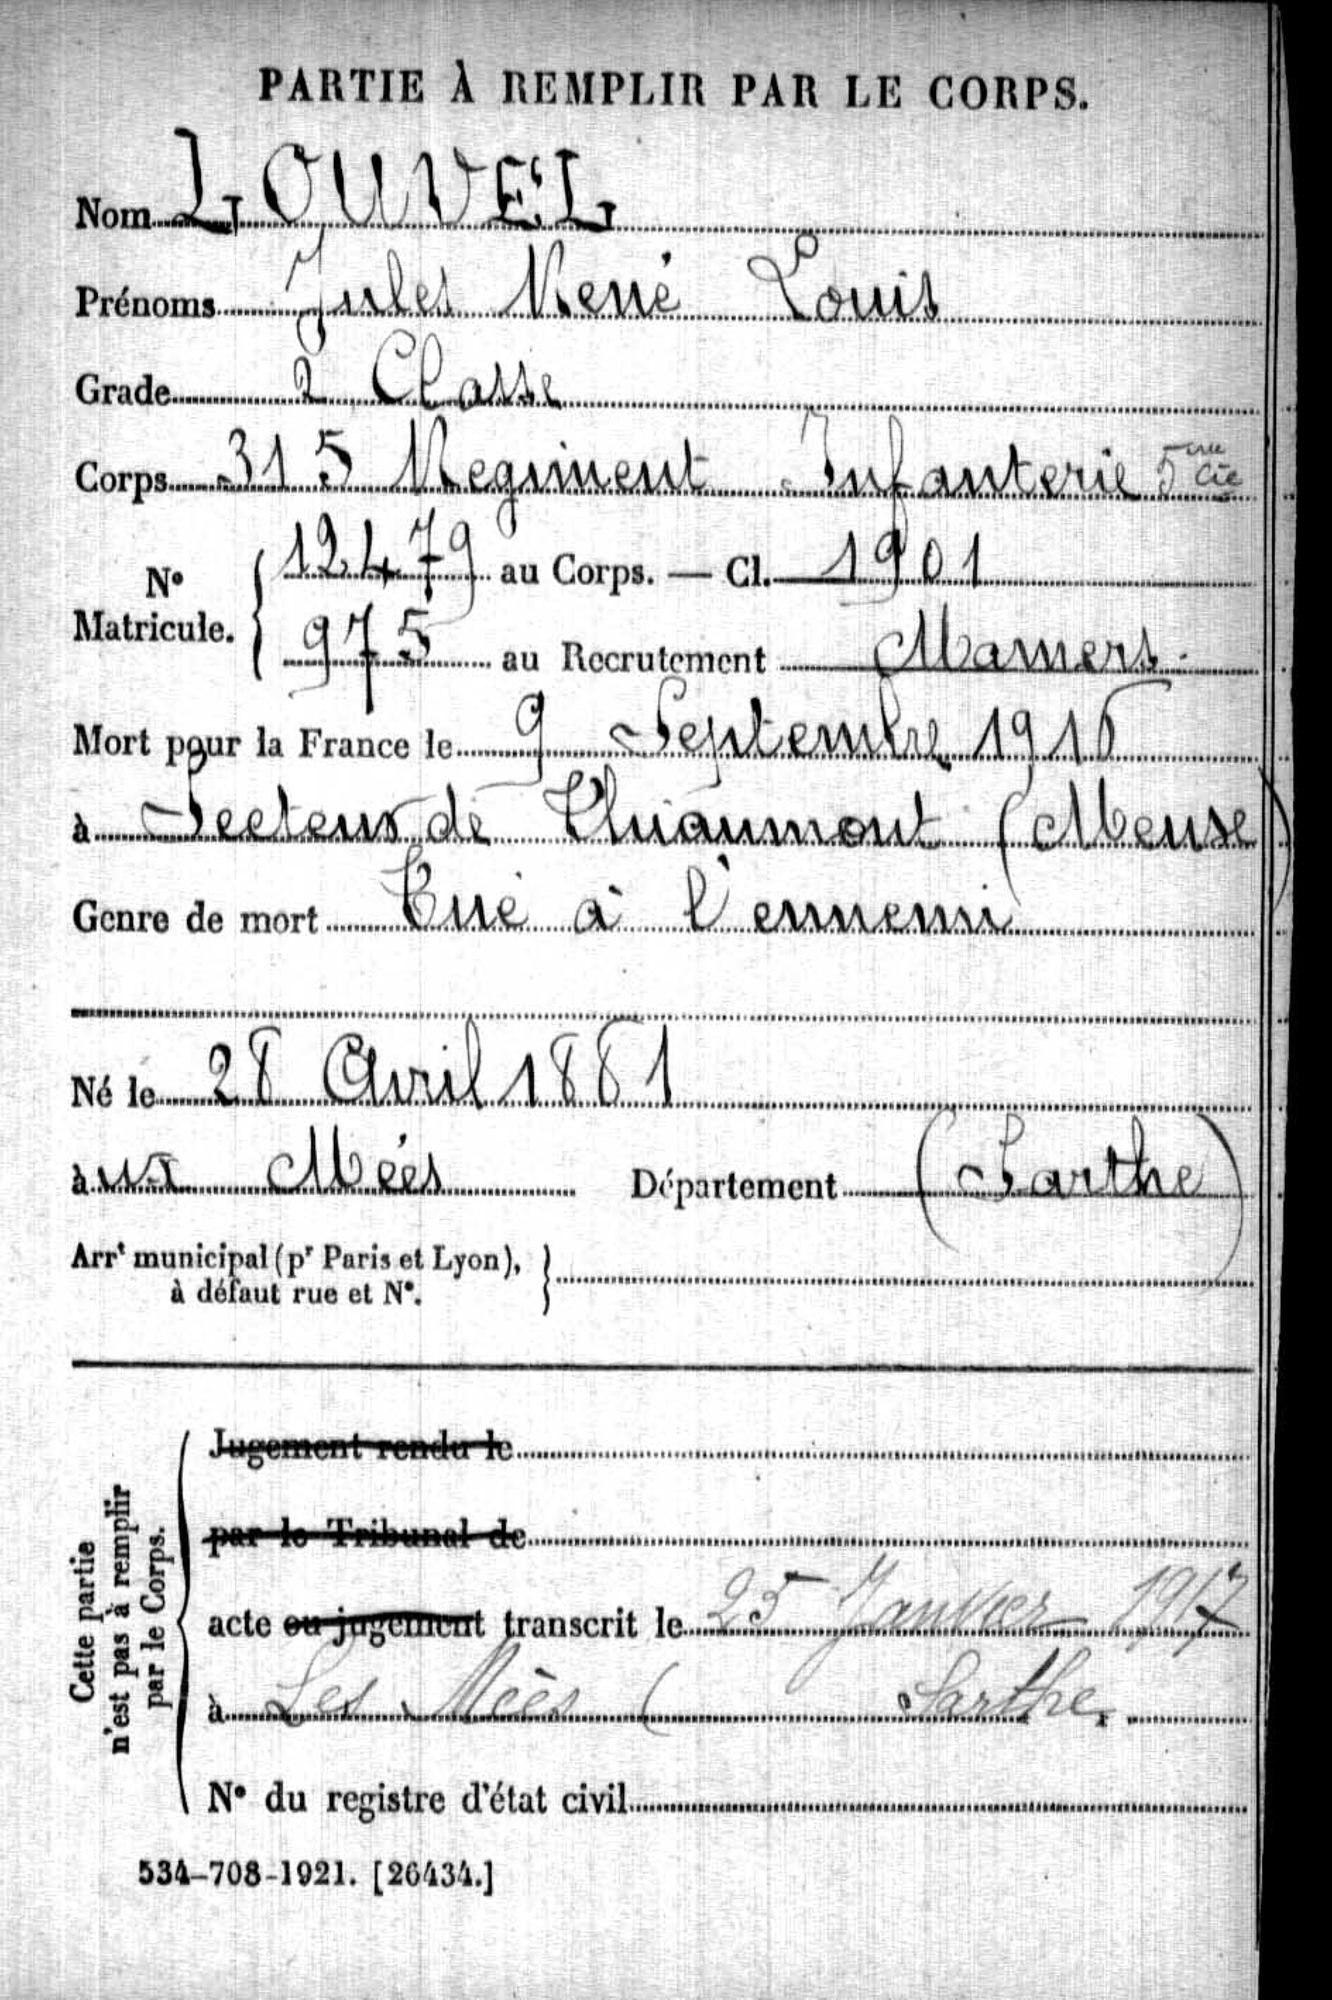 PARTIE À REMPLIR PAR LE CORPS.
Nom LOUVEL
Prénoms Jules René Louis
Grade 2 Classe
Corps 315 Regiment Infanterie 5me Cie
N° Matricule. { 12479 au Corps. — Cl. 1901
975 au Recrutement Mamers.
Mort pour la France le 9 Septembre 1916
à Secteur de Thiaumont (Meuse)
Genre de mort Tué à l'ennemi
Né le 28 Avril 1881
à ux Mées Département (Sarthe)
Arrt municipal (pr Paris et Lyon),
à défaut rue et N°. }
Cette partie
n'est pas à remplir
par le Corps.
Jugement rendu le
par le Tribunal de
acte ou jugement transcrit le 25 Janvier 1917
à Les Mèès ( Sarthe.
N° du registre d'état civil
534-708-1921. [26434.]